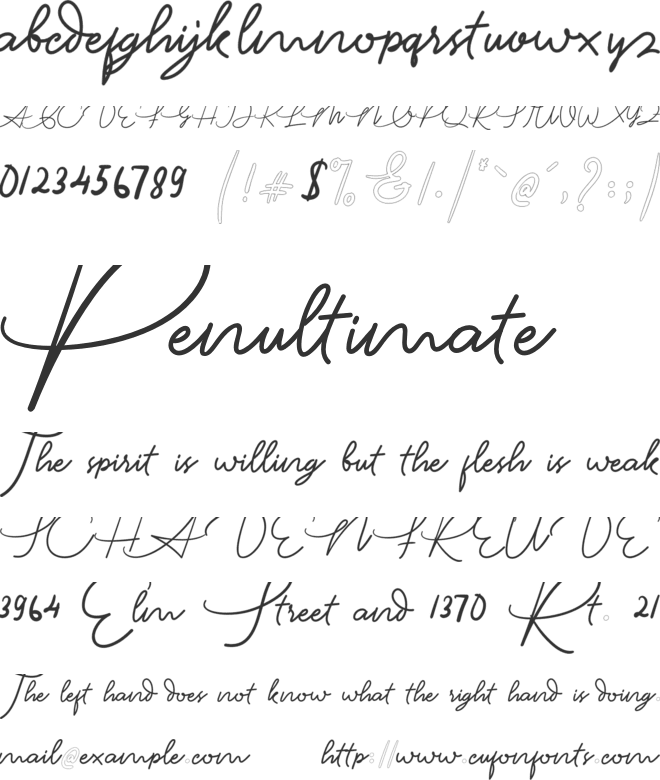 abcdefghijklmnopqrstuvwxyz
ABCDEFGHIJKLMNOPQRSTUVWXYZ
0123456789 (!#$%&/.|*`@´,?:;)
Penultimate
The spirit is willing but the flesh is weak
SCHADENFREUDE
3964 Elm Street and 1370 Rt. 21
The left hand does not know what the right hand is doing.
email@example.com http://www.cufonfonts.com